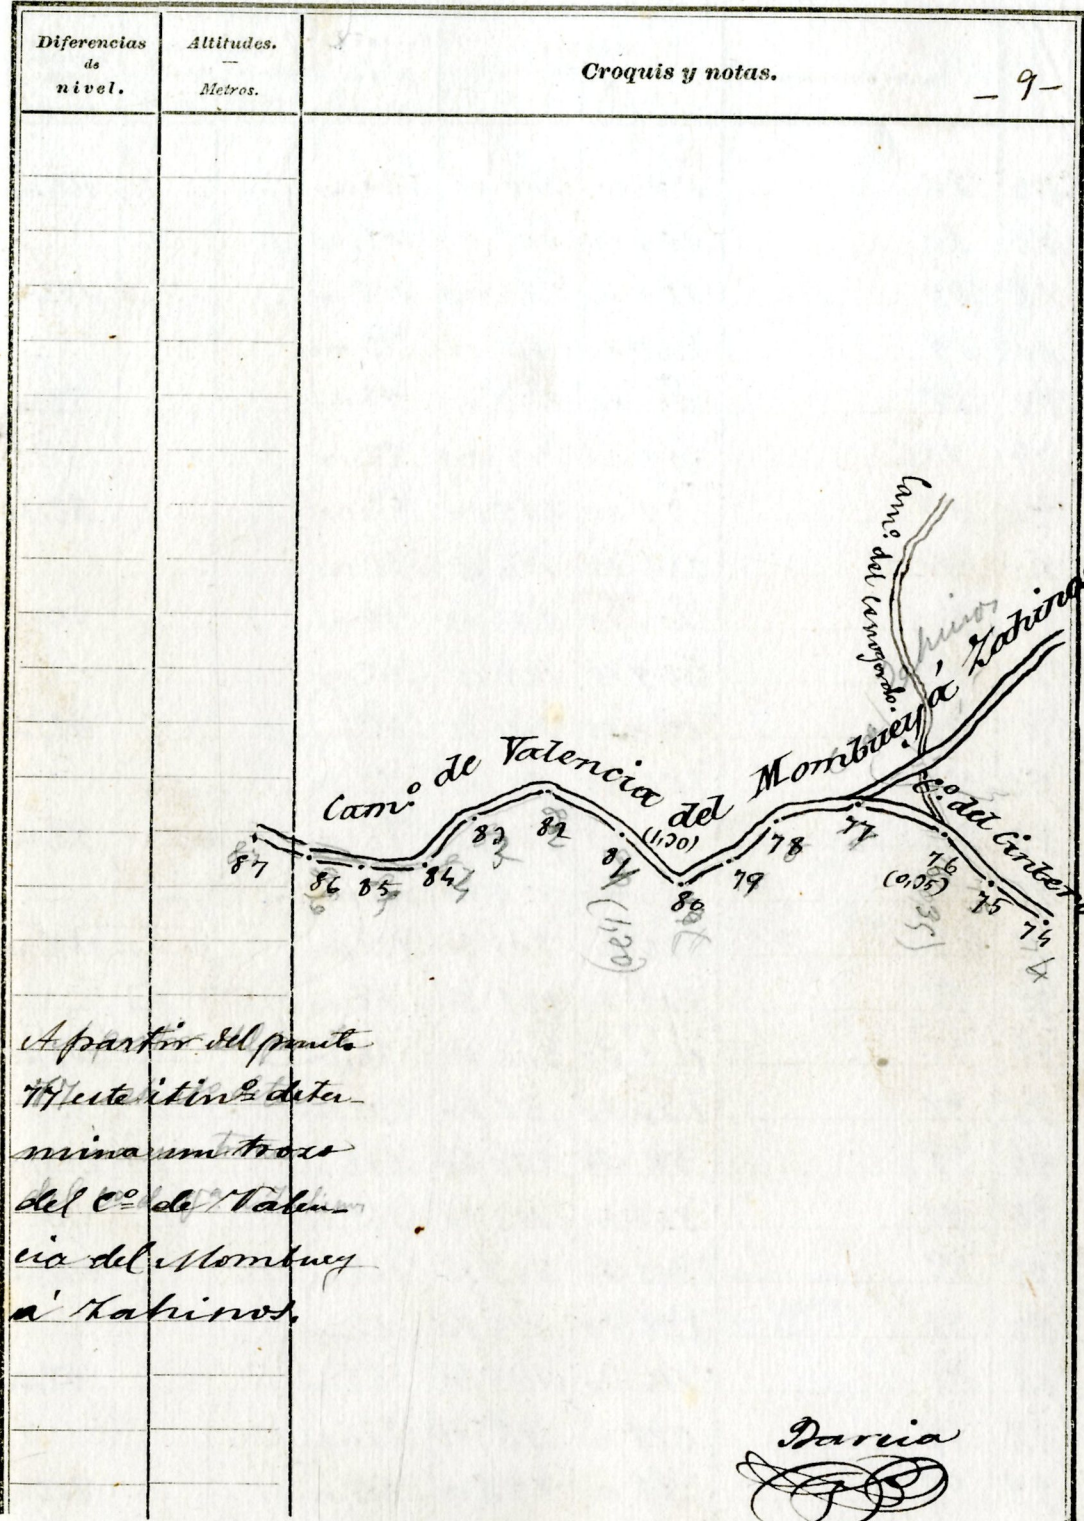 Diferencias
de
nivel.
Altitudes.
Metros.
Croquis y notas.
- 9 -
Cam.º del Cerrogordo.
Cam.º de Valencia del Mombuey á Zahinos
C.º del Cintero
87
86
85
84
83
82
81
(1,20)
80
79
78
77
76
(0,35)
75
74
A partir del punto
77 este itin.º deter-
mina un trozo
del C.º de Valen-
cia del Mombuey
á Zahinos.
Barcia